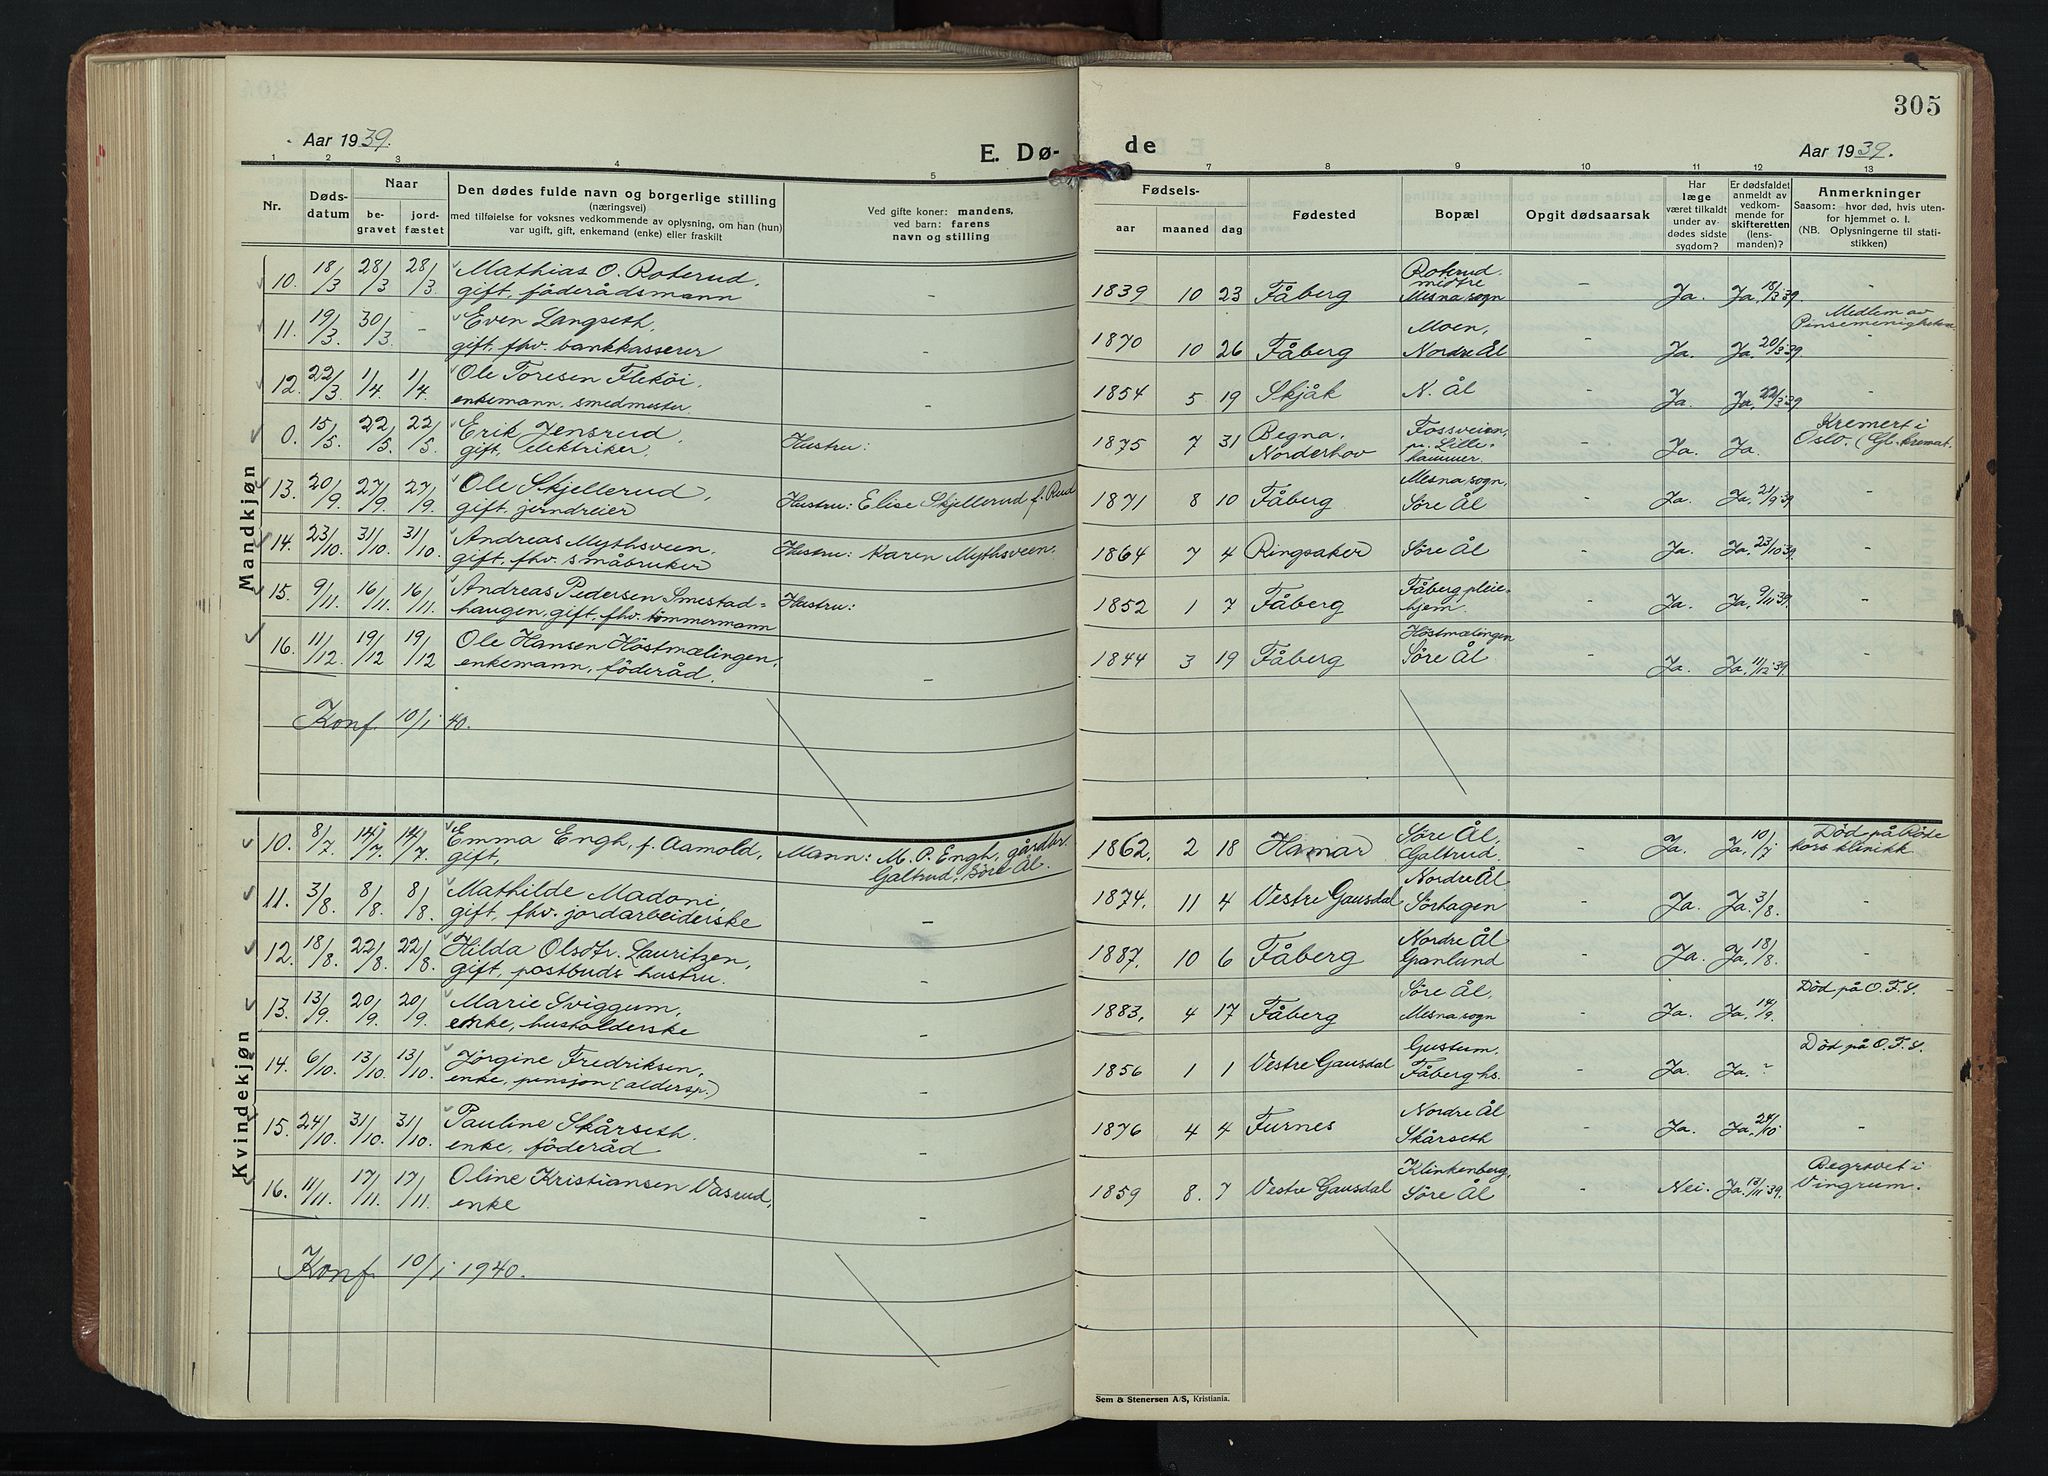 305
Aar 1939.
E. Dø-
de
Aar 1939.
1 2 3 4 5 7 8 9 10 11 12 13
Nr.
Døds-
datum
Naar
be-
gravet
jord-
fæstet
Den dødes fulde navn og borgerlige stilling
(næringsvei)
med tilføielse for voksnes vedkommende av oplysning, om han (hun)
var ugift, gift, enkemand (enke) eller fraskilt
Ved gifte koner: mandens,
ved barn: farens
navn og stilling
Fødsels-
aar maaned dag
Fødested
Bopæl
Opgit dødsaarsak
Har
læge
været tilkaldt
under av-
dødes sidste
sygdom?
Er dødsfaldet
anmeldt av
vedkom-
mende for
skifteretten
(lens-
manden)?
Anmerkninger
Saasom: hvor død, hvis uten-
for hjemmet o. l.
(NB. Oplysningerne til stati-
stikken)
Mandkjøn
10. 18/3 28/3 28/3 Mathias O. Roterud,
gift, föderådsmann -
1839 10 23 Fåberg Roterud midtre Mesna sogn - Ja. Ja, 18/3 39 -
11. 19/3 30/3 - Even Langseth,
gift, fhv. bankkasserer -
1870 10 26 Fåberg Moen, Nordre Ål - Ja. Ja, 20/3 39 Medlem av Pinsemenigheten
12. 22/3 1/4 1/4 Ole Toresen Flekøi,
enkemann, smedmester -
1854 5 19 Skjåk N. Ål - Ja. Ja, 22/3 39 -
0. 15/5 22/5 22/5 Erik Jensrud,
gift, elektriker Hustru:
1875 7 31 Begna, Norderhov Fossveien, pr. Lille-hammer. - Ja. Ja. Kremert i Oslo. (Gl. kremat.
13. 20/9 27/9 27/9 Ole Skjellerud,
gift, jerndreier Hustru: Elise Skjellerud f. Rud
1871 8 10 Fåberg Mesna sogn, Söre Ål - Ja. Ja, 21/9 39 -
14. 23/10 31/10 31/10 Andreas Mythsveen,
gift, fhv. småbruker Hustru: Karen Mythsveen.
1864 7 4 Ringsaker Söre Ål - Ja. Ja, 23/10 39 -
15. 9/11 16/11 16/11 Andreas Pedersen Smestad=
haugen, gift, fhv. tömmermann Hustru:
1852 1 7 Fåberg Fåberg pleie-hjem. - Ja. Ja, 9/11 39. -
16. 11/12 19/12 19/12 Ole Hansen Höstmælingen,
enkemann, föderåd. -
1844 3 19 Fåberg Höstmælingen Söre Ål - Ja. Ja, 11/12 39. -
Konf. 10/1 40.
Kvindekjøn
10. 8/7 14/7 14/7 Emma Engh, f. Aamold,
gift, Mann: M. P. Engh, gårdbr. Galtrud, Söre Ål.
1862. 2 18 Hamar Söre Ål, Galtrud. - Ja. Ja, 10/7 Död på Röde kors klinikk
11. 3/8 8/8 8/8 Mathilde Madoni,
gift, fhv. jordarbeiderske -
1874. 11 4 Vestre Gausdal Nordre Ål Sorhagen - Ja. Ja, 3/8. -
12. 18/8 22/8 22/8 Hilda Olsdtr. Lauritzen,
gift, postbuds hustru. -
1887. 10 6 Fåberg Nordre Ål Granlund - Ja. Ja, 18/8. -
13. 13/9 20/9 20/9 Marie Sviggum,
enke, husholderske -
1883. 4 17 Fåberg Söre Ål, Mesna sogn - Ja. Ja, 14/9. Död på O.F.S.
14. 6/10 13/10 13/10 Jörgine Fredriksen,
enke, pensjon (aldersp.) -
1856 1 1 Vestre Gausdal Gustum. Fåberg hs. - Ja. Ja. ? Död på O.F.S.
15. 24/10. 31/10 31/10. Pauline Skårseth.
enke, föderåd -
1876 4 4 Furnes Nordre Ål Skårseth - Ja. Ja, 24/10 -
16. 11/11. 17/11 17/11. Oline Kristiansen Vasrud,
enke -
1859 8. 7 Vestre Gausdal Klinkenberg, Söre Ål - Nei. Ja, 13/11 39. Begravet i Vingrum.
Konf. 10/1 1940.
Sem & Stenersen A/S, Kristiania.